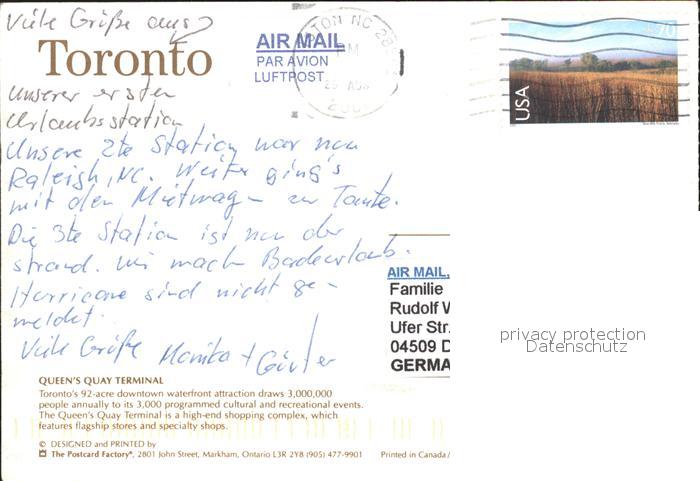 Viele Grüße aus
Toronto
unserer ersten
Urlaubsstation
Unsere 2te Station war nun
Raleigh, NC. Weiter ging's
mit den Mietwagen zur Tante.
Die 3te Station ist nun der
strand. wir mach Badeurlaub.
Hurricane sind nicht ge-
meldet.
Viele Grüße Monika + Günter
AIR MAIL
PAR AVION
LUFTPOST
TON NC
PM
70
USA
AIR MAIL,
Familie
Rudolf W
Ufer Str.
04509 D
GERMA
privacy protection
Datenschutz
QUEEN'S QUAY TERMINAL
Toronto's 92-acre downtown waterfront attraction draws 3,000,000
people annually to its 3,000 programmed cultural and recreational events.
The Queen's Quay Terminal is a high-end shopping complex, which
features flagship stores and specialty shops.
© DESIGNED and PRINTED by
The Postcard Factory®, 2801 John Street, Markham, Ontario L3R 2Y8 (905) 477-9901 Printed in Canada/